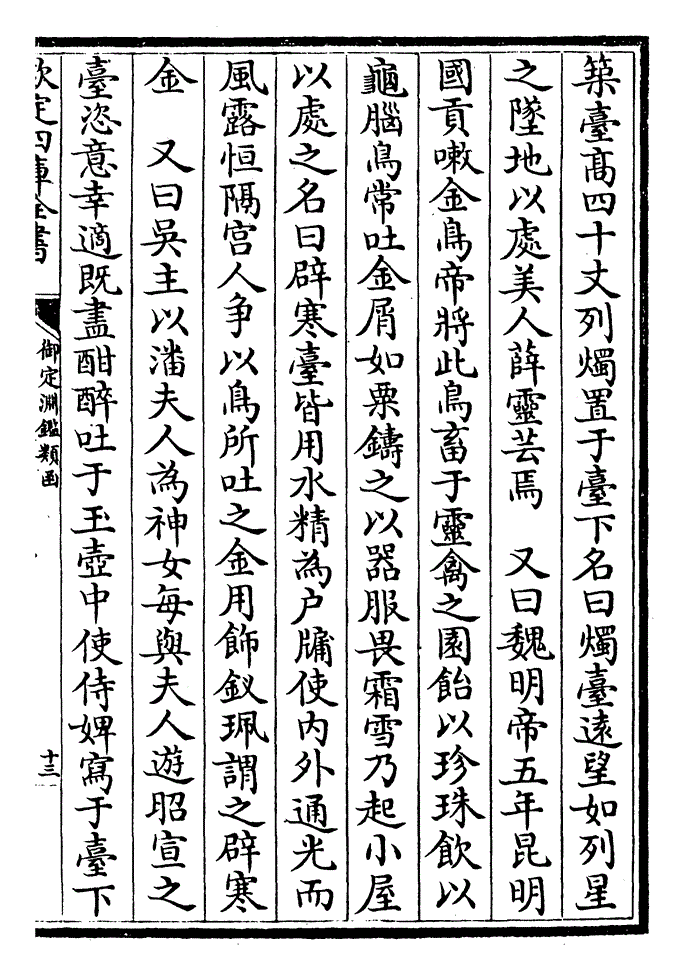 築臺髙四十丈列燭置于臺下名曰燭臺逺望如列星
之墜地以處美人薛靈芸焉　又曰魏明帝五年昆明
國貢嗽金鳥帝將此鳥畜于靈禽之園飴以珍珠飲以
龜腦鳥常吐金屑如粟鑄之以器服畏霜雪乃起小屋
以處之名曰辟寒臺皆用水精為户牖使内外通光而
風露恒隔宫人争以鳥所吐之金用飾釵珮謂之辟寒
金　又曰吳主以潘夫人為神女每與夫人遊昭宣之
臺恣意幸適既盡酣醉吐于玉壺中使侍婢寫于臺下
欽定四庫全書
御定淵鑑類函
十三